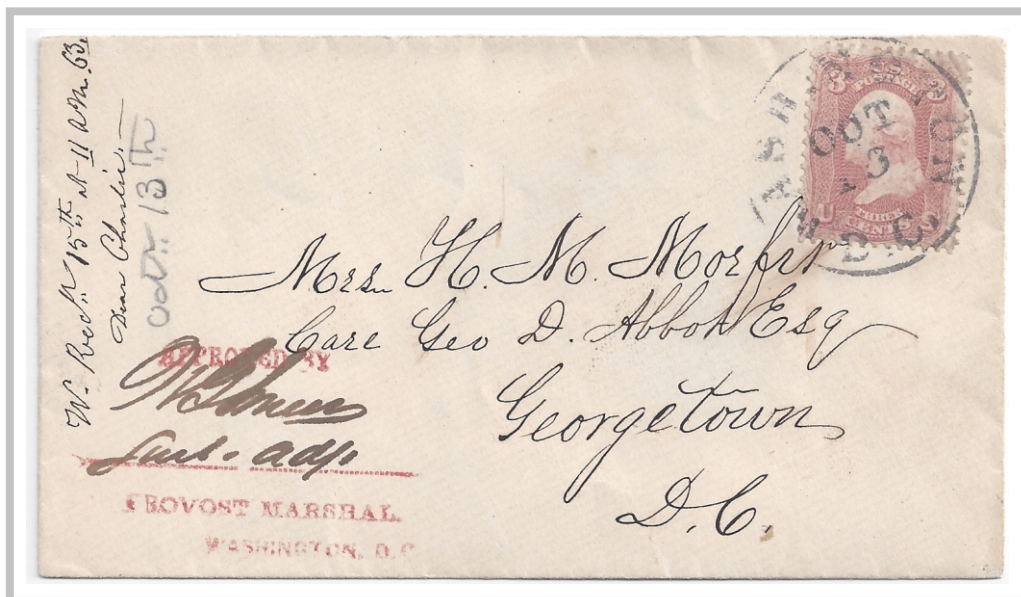 W. Recd 15th at 11 A.M. 63.
Dear Charlie.—
Oct. 13th
WASHINGTON
OCT
13
D.C.
U.S.
POSTAGE
3 3
U S
THREE
CENTS
Mrs. H. M.
Care Geo D. Abbott Esq
Georgetown
D.C.
APPROVED BY
Adjt.
PROVOST MARSHAL.
WASHINGTON, D.C.